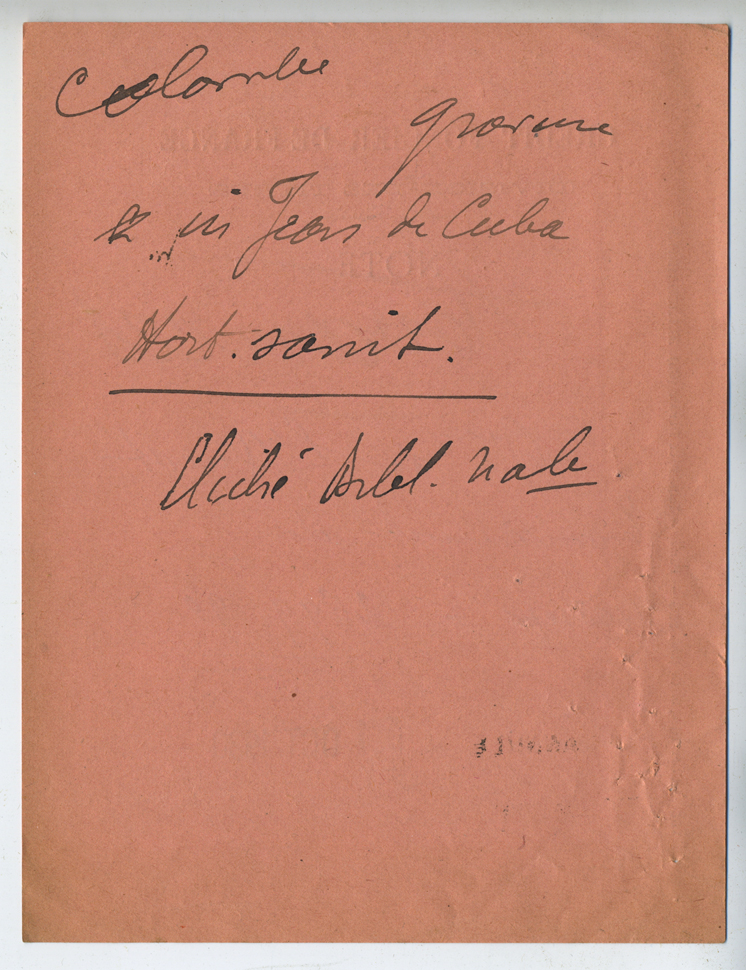 Colombe
gravure
in Jean de Cuba
Hort. sanit.
Cliché Bibl. Nale